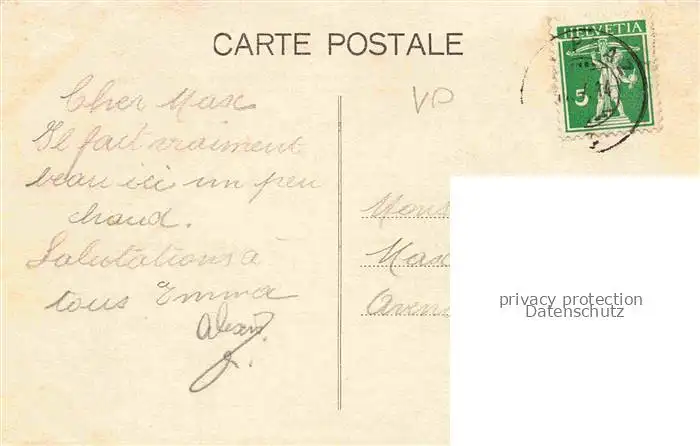 CARTE POSTALE
HELVETIA
5
VD
Cher Max
Il fait vraiment
beau ici un peu
chaud.
Salutations à
tous Emma
Mons
Max
privacy protection
Datenschutz